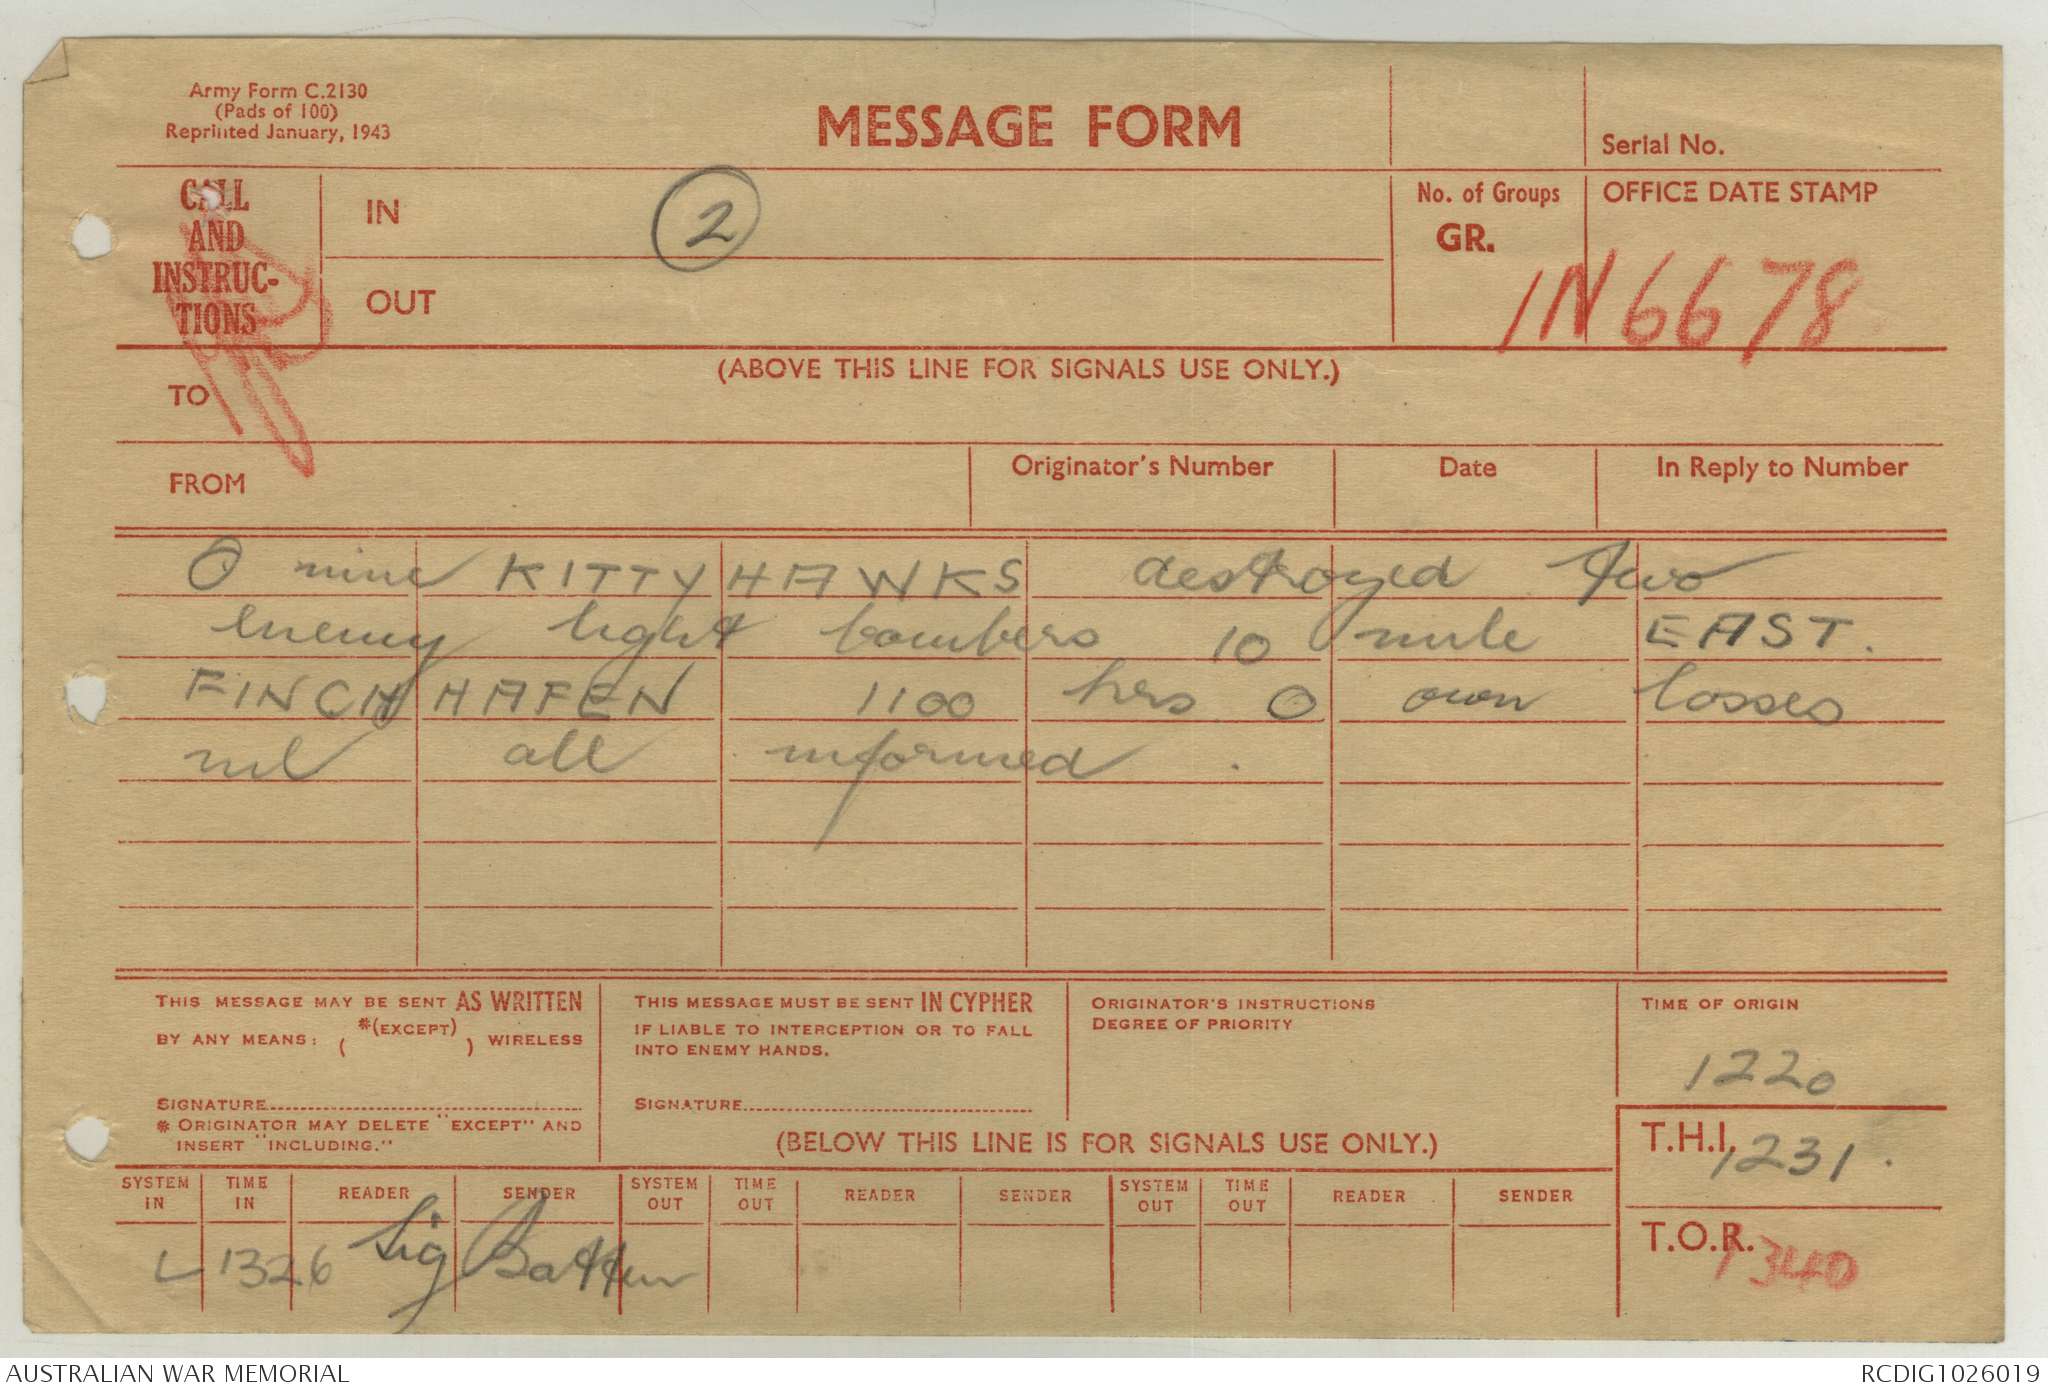 Army Form C.2130
(Pads of 100)
Reprinted January, 1943
MESSAGE FORM
Serial No.
CALL
AND
INSTRUC-
TIONS
IN
2
OUT
No. of Groups
GR.
OFFICE DATE STAMP
IN 6678
(ABOVE THIS LINE FOR SIGNALS USE ONLY.)
TO
FROM
Originator's Number
Date
In Reply to Number
O nine KITTYHAWKS destroyed two
enemy light bombers 10 mile EAST.
FINCHHAFEN 1100 hrs O own losses
nil all informed.
THIS MESSAGE MAY BE SENT AS WRITTEN
BY ANY MEANS: ( *(EXCEPT) ) WIRELESS
SIGNATURE
* ORIGINATOR MAY DELETE "EXCEPT" AND
INSERT "INCLUDING."
THIS MESSAGE MUST BE SENT IN CYPHER
IF LIABLE TO INTERCEPTION OR TO FALL
INTO ENEMY HANDS.
SIGNATURE
ORIGINATOR'S INSTRUCTIONS
DEGREE OF PRIORITY
TIME OF ORIGIN
1220
(BELOW THIS LINE IS FOR SIGNALS USE ONLY.)
T.H.I. 1231.
SYSTEM IN TIME IN READER SENDER SYSTEM OUT TIME OUT READER SENDER SYSTEM OUT TIME OUT READER SENDER
L 1326 Sig
T.O.R. 1340
AUSTRALIAN WAR MEMORIAL
RCDIG1026019